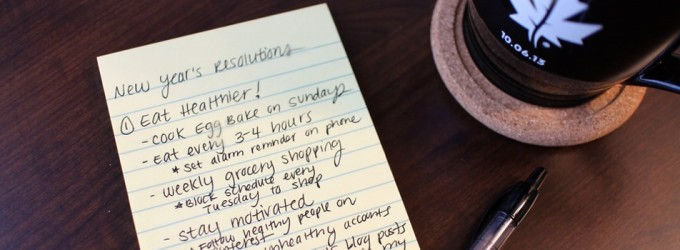 New Year's Resolutions
① Eat Healthier!
- Cook Egg Bake on Sundays
- Eat every 3-4 hours
* Set alarm reminder on phone
- weekly grocery shopping
* Block schedule every
Tuesday to shop
- Stay motivated
* Follow healthy people on
unhealthy accounts
blog posts
my
10.06.13